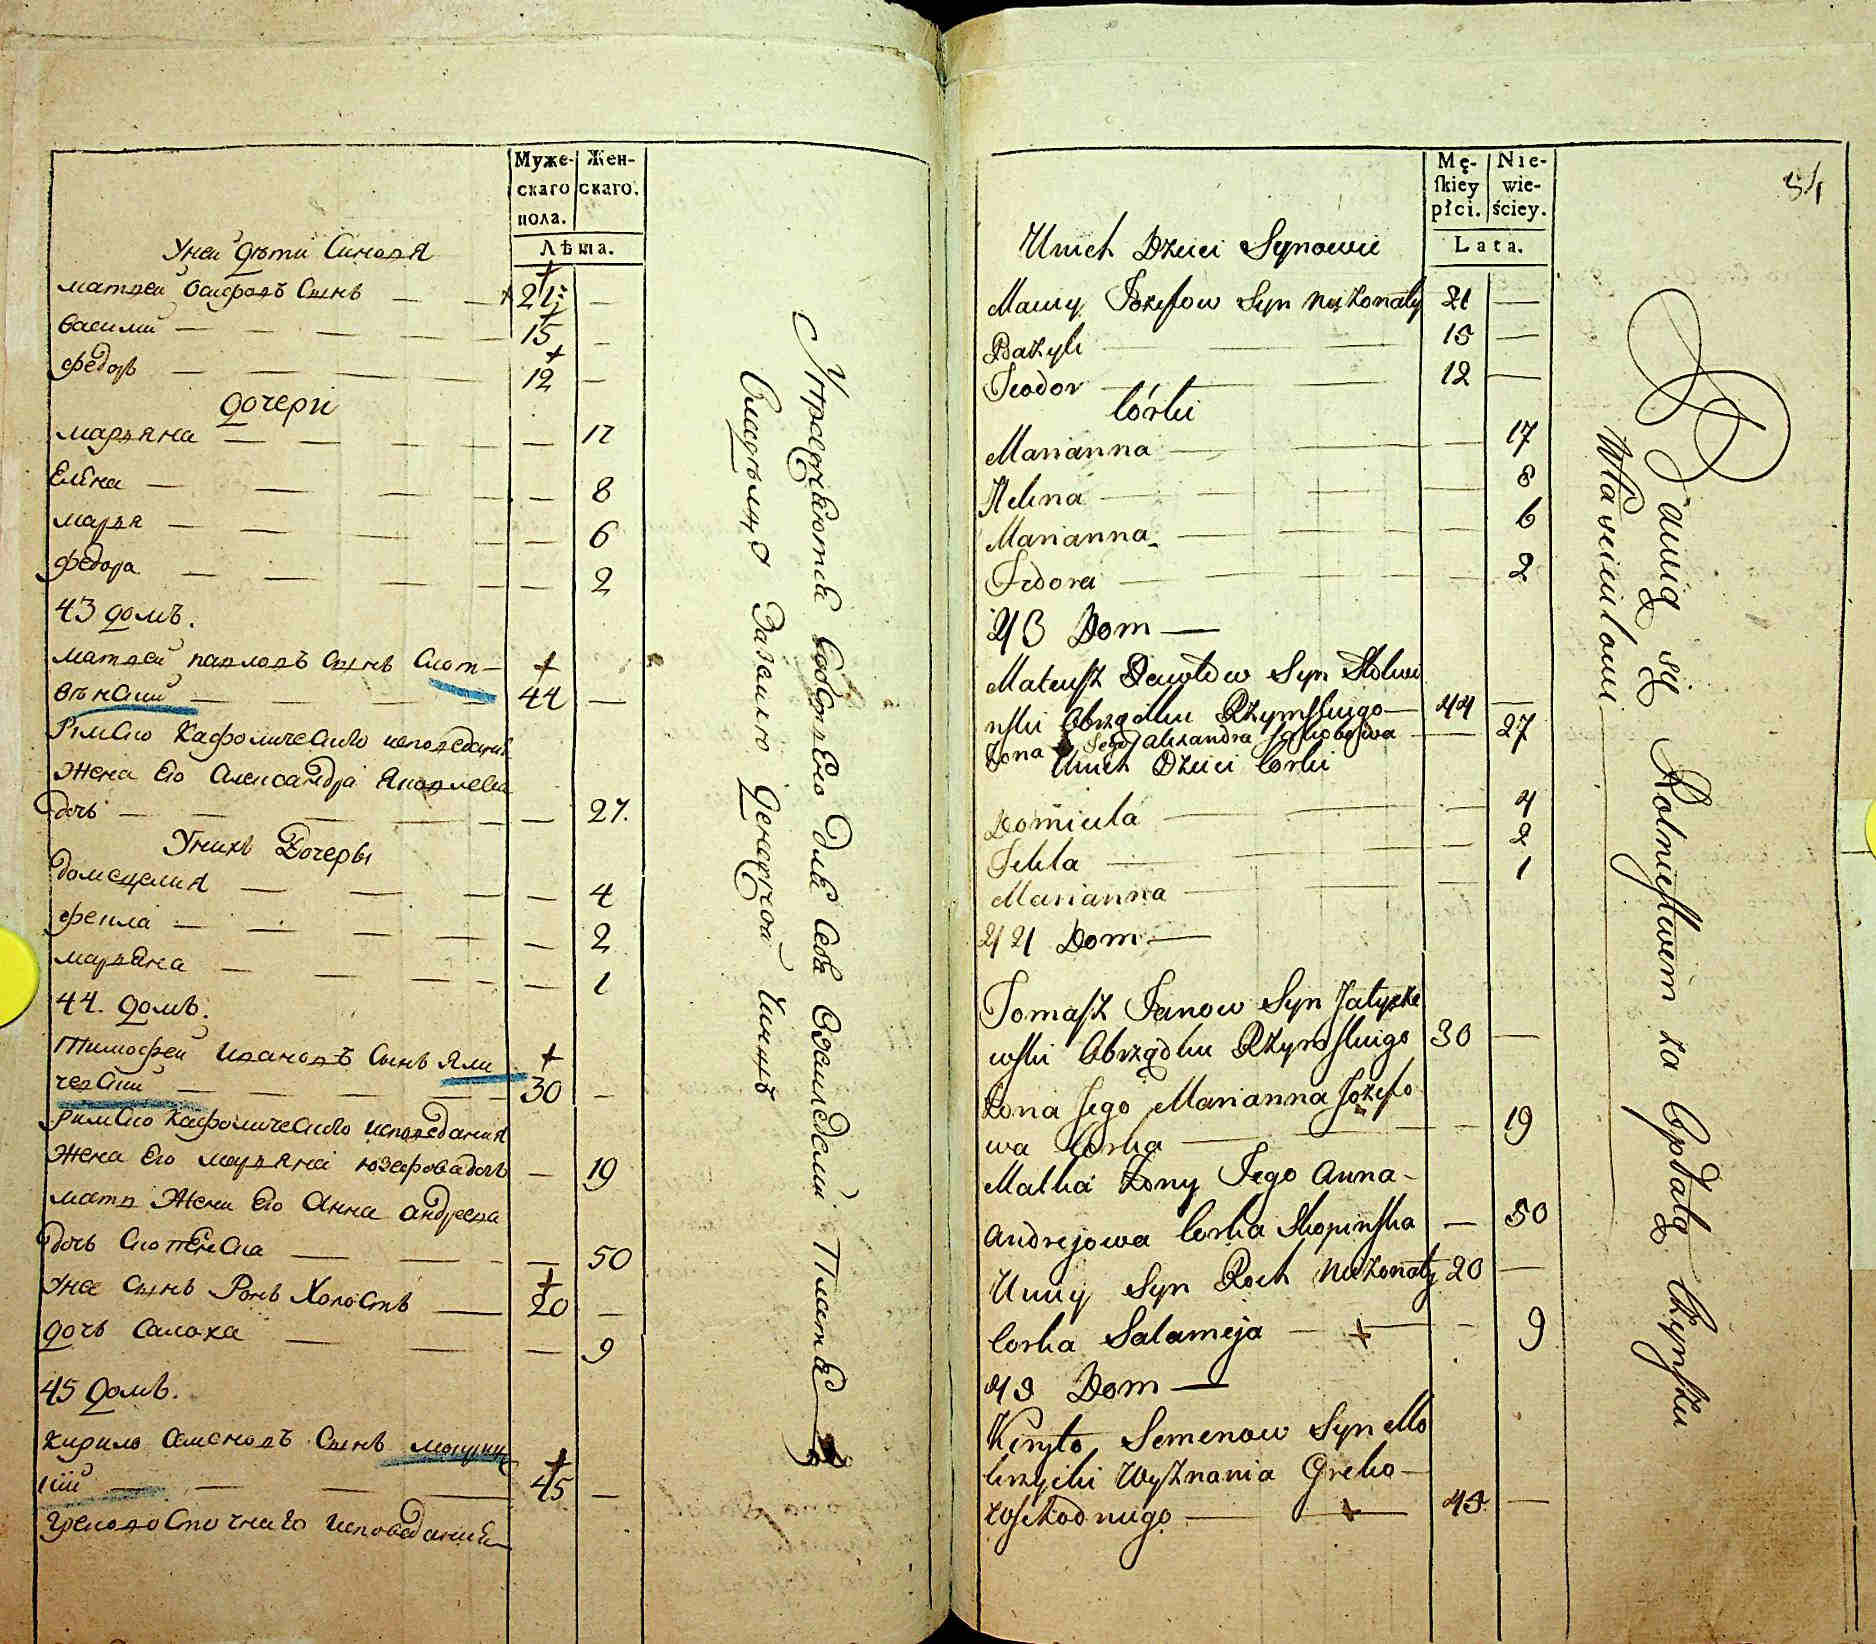 Муже-
скаго
пола.
Жен-
скаго.
Лѣта.
Унеи дѣти Синовя
матвеи Осифовъ Сынъ — — 21 —
Васили — — — 15 —
федоръ — — — 12 —
дочери
марвяна — — — 17
Елена — — — 8
марья — — — 6
федора — — — 2
43 домъ.
матвеи павловъ Сынъ Скот-
вѣнский — — — 44 —
Римско Кафолического исповеданія
Жена Его Александра Яковлева
дочь — — — 27.
Унихъ Дочеры
домецелия — — — 4
фекла — — — 2
марвяна — — — 1
44. домъ.
Тимофеи Ивановъ Сынъ Яли
чевский — — — 30 —
Римско Кафолического исповедания
Жена Его марвяна юзефова дочь — 19
мать Жени Его Анна андреева
дочь — — — 50
Унее Сынъ Рохъ Холостъ — 20 —
дочь Саломея — — — 9
45 домъ.
Кирило Семеновъ Сынъ
— — — 45 —
Грековосточнаго исповедания
Упражняются для Себя Платя
Владѣльцу Денежной Чиншъ
54
Mę-
ſkiey
płci.
Nie-
wie-
ściey.
Lata.
Unich Dzieci Synowie
Maciey Jozefow Syn Nieżonaty 21 —
Bazyli — — 15 —
Teodor — — 12 —
Córki
Marianna — — 17
Helena — — 8
Marianna — — 6
Fedora — — 2
43 Dom —
Mateuſz Pawłow Syn Skotwi
nſki Obrządku Rzymſkiego — 44 —
Żona Jego Alexandra Jakobowa — 27
Unich Dzieci Corki
Domicela — — 4
Tekla — — 2
Marianna — — 1
44 Dom —
Tomaſz Janow Syn Jałyże
wſki Obrządku Rzymſkiego 30 —
Żona Jego Marianna Jozefo
wa Corka — — 19
Matka Żony Jego Anna
Andrejowa Corka Skopinſka — 50
Uniey Syn Roch Nieżonaty 20 —
Corka Salomeja — — 9
45 Dom —
Kiryło Semenow Syn Mo
krzycki Wyznania Greko
Wſchodniego — 45 —
Bawią się Rolnictwem za Opłatą Czynſzu
Właścicielowi